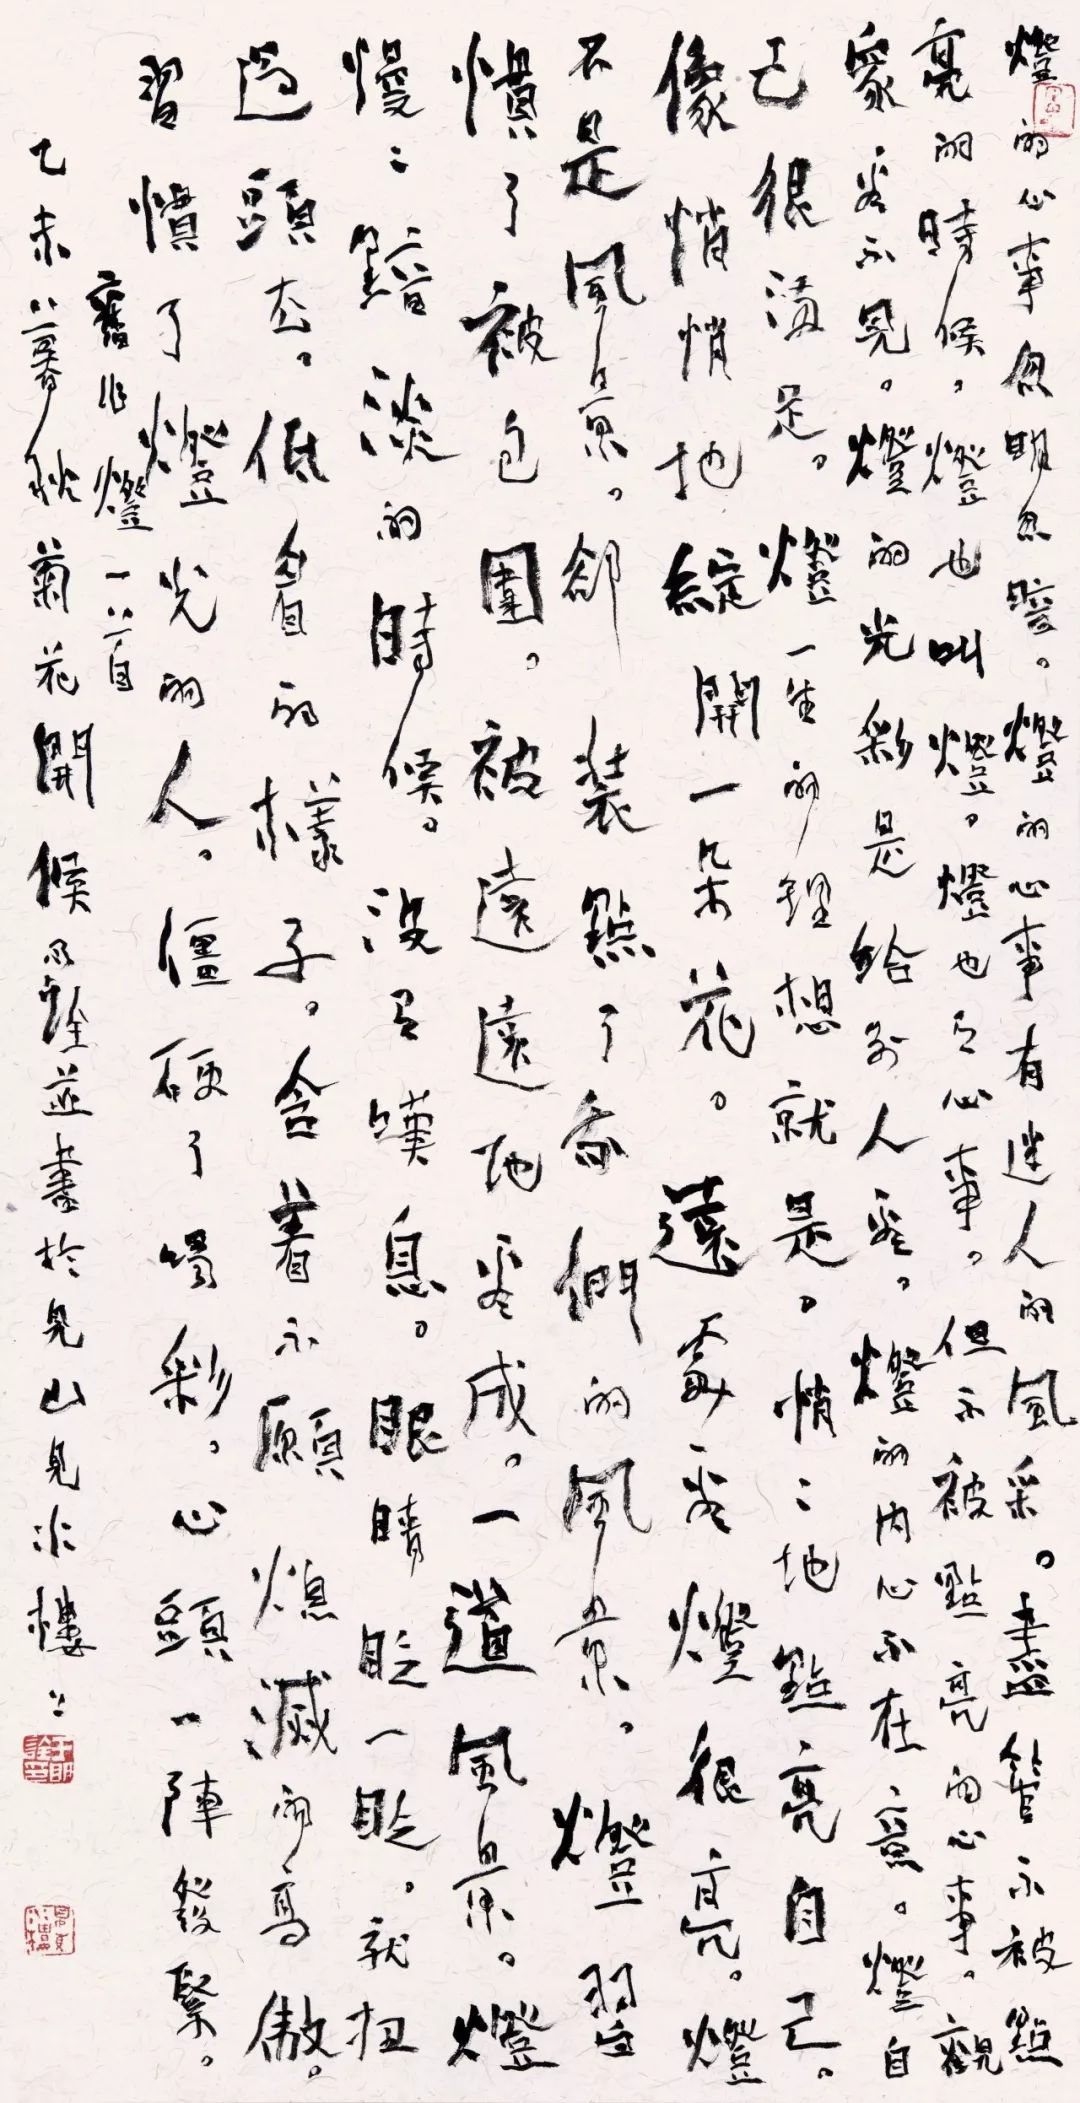 燈的心事忽明忽暗。燈的心事有迷人的風采。盡管不被點
亮的時候。燈也叫燈。燈也有心事。但不被點亮的心事。觀
衆看不見。燈的光彩是給別人看。燈的内心不在意。燈自
己很滿足。燈一生的理想就是。悄〻地點亮自己。
像悄悄地綻開一朵花。遠處看燈很亮。燈
不是風景。卻裝點了我們的風景。燈習
慣了被包圍。被遠遠地看成。一道風景。燈
慢〻黯淡的時候。沒有嘆息。眼睛眨一眨。就扭
過頭去。低着的樣子。含着不願熄滅的高傲。
習慣了燈光的人。僵硬了喝彩。心頭一陣發緊。
舊作燈一首
乙未 秋菊花開候 明詮並書於見山見水樓〻